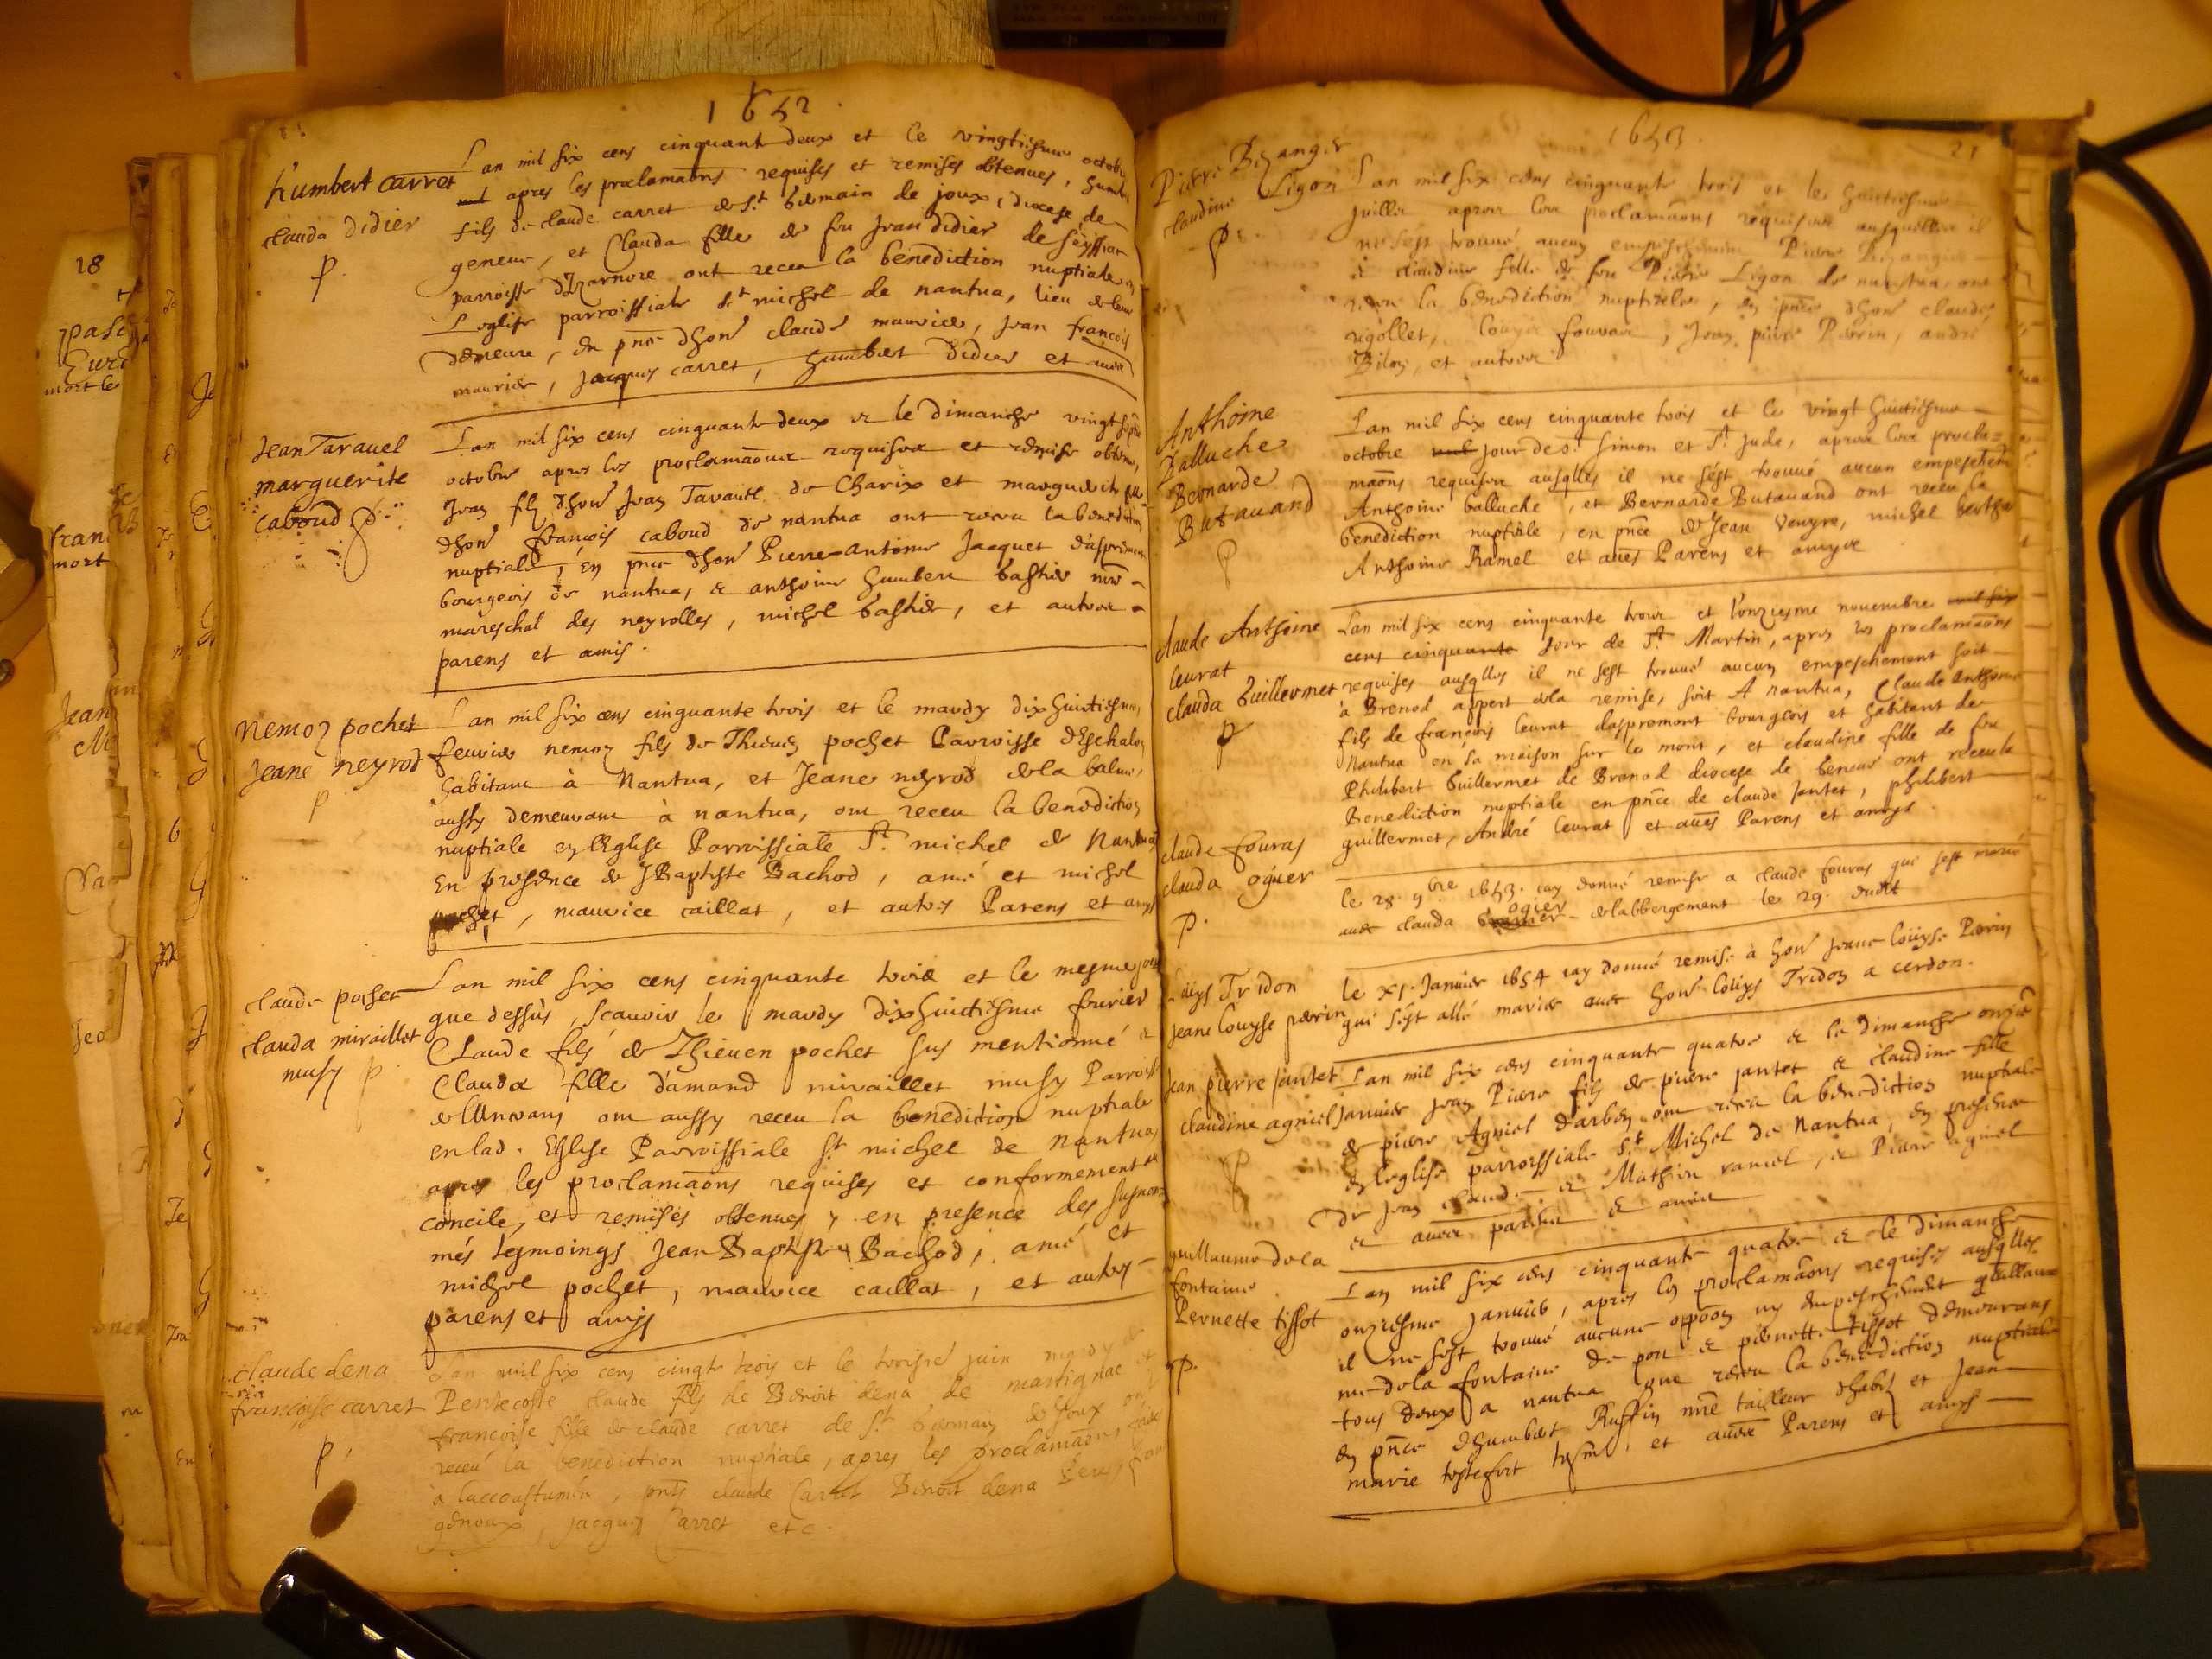 1652
humbert carret
clauda didier
p.
Lan mil six cens cinquant deux et le vingtiesme octob
apres les proclamaõns requises et remises obtenues, humb
fils de claude carret de St. Germain de joux, diocese de
geneve, et Clauda fille de feu Jean didier de
parroisse dIzarnore ont receu la benediction nuptiale
L'eglise parroissiale St michel de nantua, lieu de leur
demeure, en pnce dhon claude mauvice, Jean francois
mauvice, jacques carret, humbert didier et autre
Jean Taravel
marguerite
caboud
Lan mil six cens cinquant deux et le dimanche vingt
octobre apres les proclamaõns requises et remise obtenue,
Jean fils dhon Jean Tavault de Charix et marguerite
dhon francois caboud de nantua ont receu la benediction
nuptiale, en pnce dhon Pierre-antoine Jacquet d'aspremont
bourgeois de nantua, & anthoine humbert bastie mre
mareschal des neyrolles, michel bastie, et autres
parens et amis.
nemoz pochet
Jeane neyrod
p
Lan mil six cens cinquante trois et le mardy dix huictiesme
feuvier nemoz fils de Thieven pochet Parroisse dEschalo
habitant à Nantua, et Jeane neyrod de la balme,
aussy demeurant à nantua, ont receu la benediction
nuptiale en lEglise Parroissiale St. michel de Nantua
En presence de JBaptiste Bachod, amé et michel
pochet, mauvice caillat, et autres Parens et amys
claude pochet
clauda miraillet
musy p.
Lan mil six cens cinquante trois et le mesme jour
que dessùs, scauoir le mardy dixhuictiesme feuvier
CLaude fils de Thieuen pochet sus mentionné &
Clauda fille d'amand miraillet musy Parroisse
ont aussy receu la benediction nuptiale
en lad. Eglise Parroissiale St michel de nantua
apres les proclamaõns requises et conformement au
concile, et remises obtenues, en presence des susnom
més tesmoings Jean Baptiste Bachod, amé et
michel pochet, mauvice caillat, et autres
parens et amys
claude dena
francoise carret
p.
Lan mil six cens cinqte trois et le troisie juin mardy de
Pentecoste claude fils de Benoit dena de martignac et
francoise fille de claude carret de St. Germain de Joux ont
receu la benediction nuptiale, apres les proclamaõns faites
à laccoustumée, pnts claude Carret Benoit dena
genoux, jacques Carret etc.
1653.
21
Pierre Bezanger
claudine Ligon
p
Lan mil six cens cinquante trois et le huictiesme
juillet apres les proclamaõns requises ausquelles il
ne sest trouué aucun empeschement Pierre Bezanger
& claudine fille de feu Pierre Ligon de nantua, ont
receu la benediction nuptiale, en pnce dhon claude
rigollet, Jean pierre Perrin, andré
Biloz, et autres
Anthoine
Balluche
Bernarde
Butauand
p
Lan mil six cens cinquante trois et le vingt huictiesme
octobre jour de St. Simon et St. Jude, apres les procla=
maõns requises ausqlles il ne sest trouué aucun empeschem
Anthoine balluche, et Bernarde Butauand ont receu la
benediction nuptiale, en pnce de Jean Veugre, michel berthe
Anthoine Ramel et aues Parens et amys
claude Anthoine
leurat
clauda Guillermet
p
Lan mil six cens cinquante trois et l'onziesme novembre mil six
cens cinquante Jour de St. Martin, apres les proclamaõns
requises ausqlles il ne sest trouué aucun empeschement soit
à Brenod appert dela remise, soit A nantua, Claude Anthoine
fils de francois leurat daspremont bourgeois et habitant de
Nantua en sa maison sur le mont, et claudine fille de feu
Philibert Guillermet de Brenod diocese de Geneue ont receu la
Benediction nuptiale en pnce de claude Jantet, philibert
guillermet, André leurat et aues Parens et amys.
claude fouras
clauda ogier
p.
le 28. 9bre 1653. iay donné remise a claude fouras qui sest marié
auec clauda ogier delabbergement le 29. dudit
Louys Tridon
Jeane Louyse perrin
le xj. Januier 1654 iay donné remise à hon Jeane Louyse Perrin
qui s'est allé marier auec hon Louys Tridoz a cerdon.
Jean pierre Jantet
claudine agniel
p
Lan mil six cens cinquante quatre & le dimanche onzie
Januier Jean Pierre fils de pierre jantet & claudine fille
de pierre Agniel darben ont receu la benediction nuptiale
en leglise parroissiale St. Michel de Nantua, en presence
de Jean claude & Mathieu ramel, & Pierre agniel
& autres parens & amis
guillaume dela
fontaine
Pernette tissot
p.
Lan mil six cens cinquante quatre & le dimanche
onziesme januier, apres les proclamaõns requises ausqlles
il ne sest trouué aucune oppoõn ny empeschement guillau=
me dela fontaine de pon & pernette tissot demeurans
tous deux a nantua ont receu la benediction nuptiale
en pnce dhumbert Ruffin mre tailleur dhabit et Jean
marie testefort tesm. et autres Parens et amys